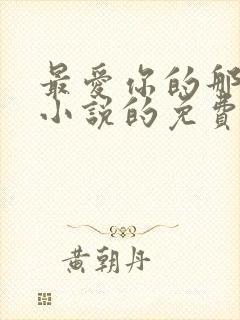 最愛你的那
小說的免費
黄朝丹